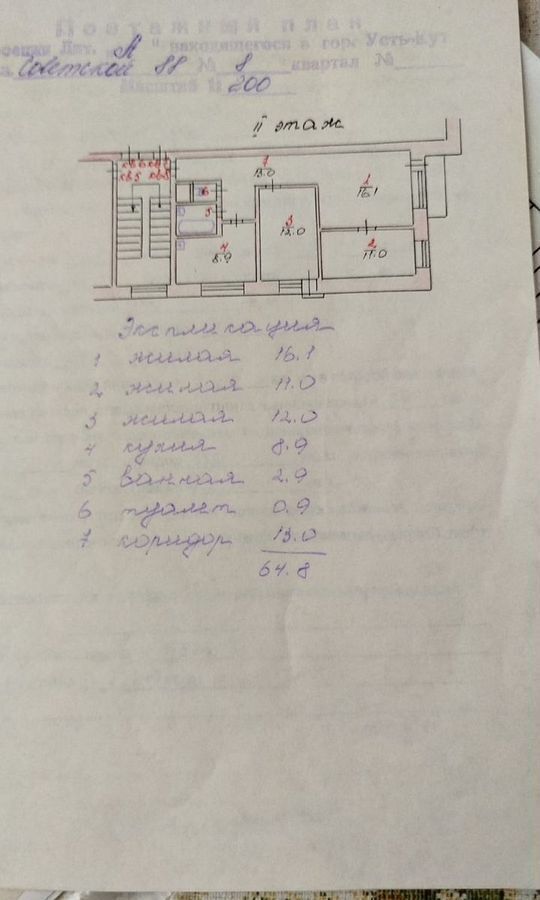 Поэтажный план
Лит. „А", находящегося в гор. Усть-Кут
Советской 88 № 8 квартал №
Масштаб 1: 200
II этаж
кв6 кв7
кв5 кв8
7
13.0
1
16.1
6
5
3
12.0
4
8.9
2
11.0
Экспликация
1 жилая 16.1
2 жилая 11.0
3 жилая 12.0
4 кухня 8.9
5 ванная 2.9
6 туалет 0.9
7 коридор 13.0
64.8